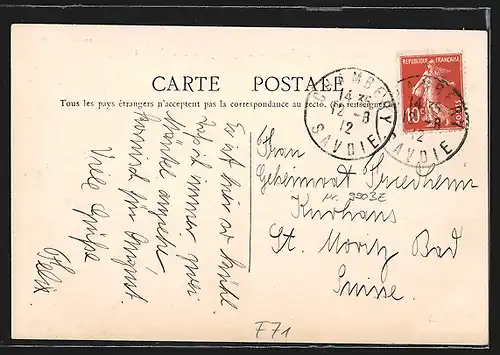 CARTE POSTALE
Tous les pays étrangers n'acceptent pas la correspondance au recto. (Se renseigner)
RÉPUBLIQUE FRANÇAISE
10
POSTES
CHAMBERY
14 35
12 -8
12
SAVOIE
Es ist hier so kühl
immer zwei
Mäntel anziehe,
für August.
Viele Grüße
Felix
Frau
Geheimrat
Kurhaus
St. Moritz Bad
Suisse.
F71